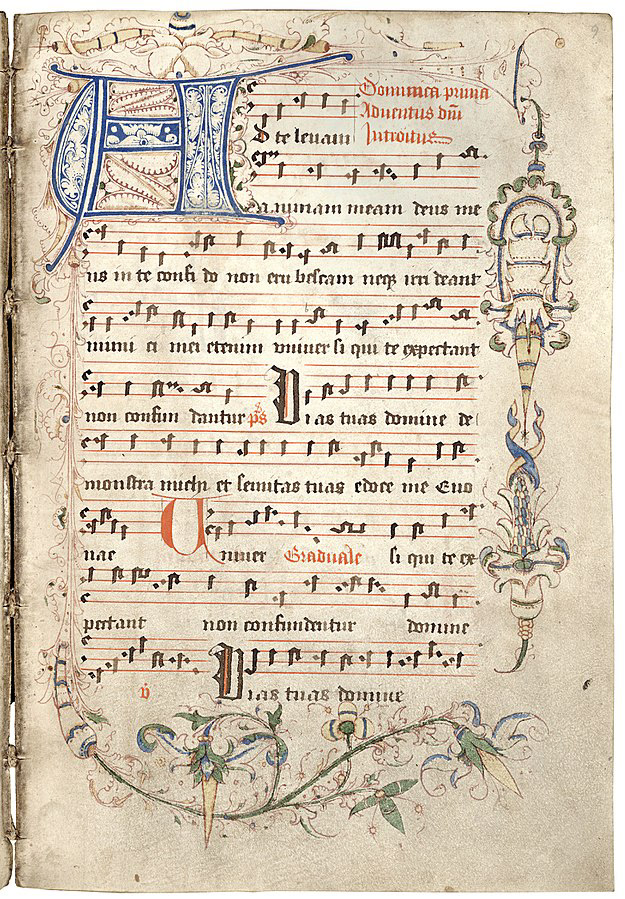 Dominica prima
Adventus dni
Ad te levavi Introitus
animam meam deus me
us in te confi do non eru bescam neqz irri deant
inimi ci mei etenim vniver si qui te expectant
non confun dantur ps Vias tuas domine de
monstra michi et semitas tuas edoce me Euo
uae Univer Graduale si qui te ex
pectant non confundentur domine
v Vias tuas domine